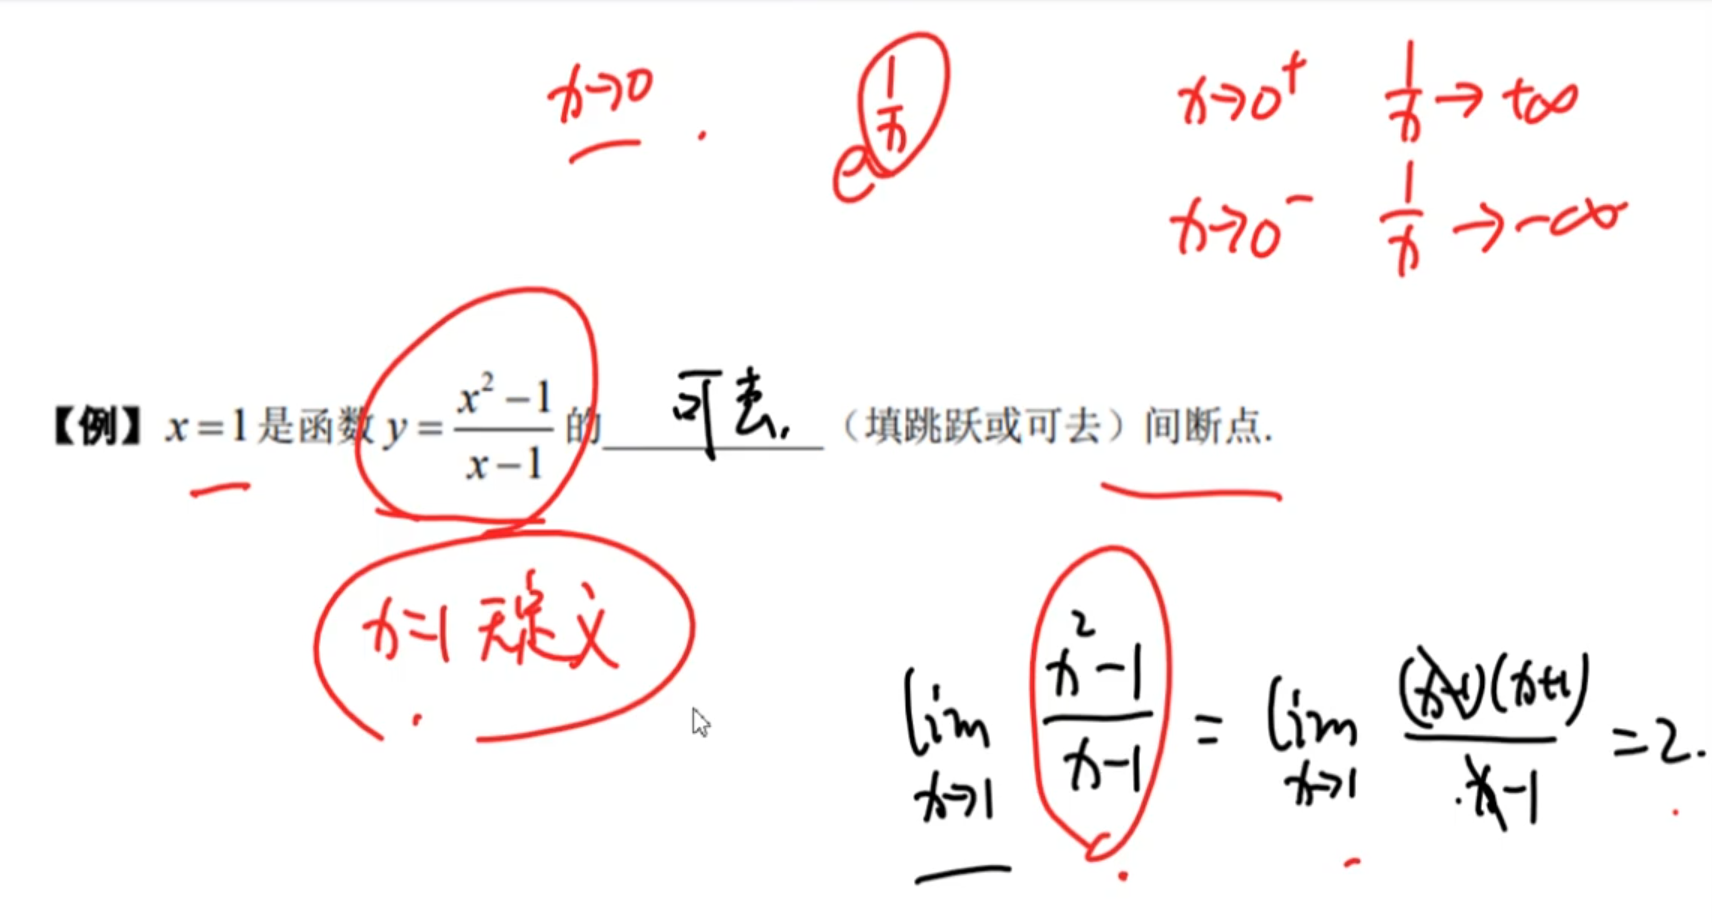 x→0 . e^{1/x} x→0⁺ 1/x → +∞
x→0⁻ 1/x → -∞
【例】x=1是函数 y = (x²-1)/(x-1) 的 可去. (填跳跃或可去)间断点.
x=1 无定义
lim_{x→1} (x²-1)/(x-1) = lim_{x→1} (x-1)(x+1)/(x-1) = 2.